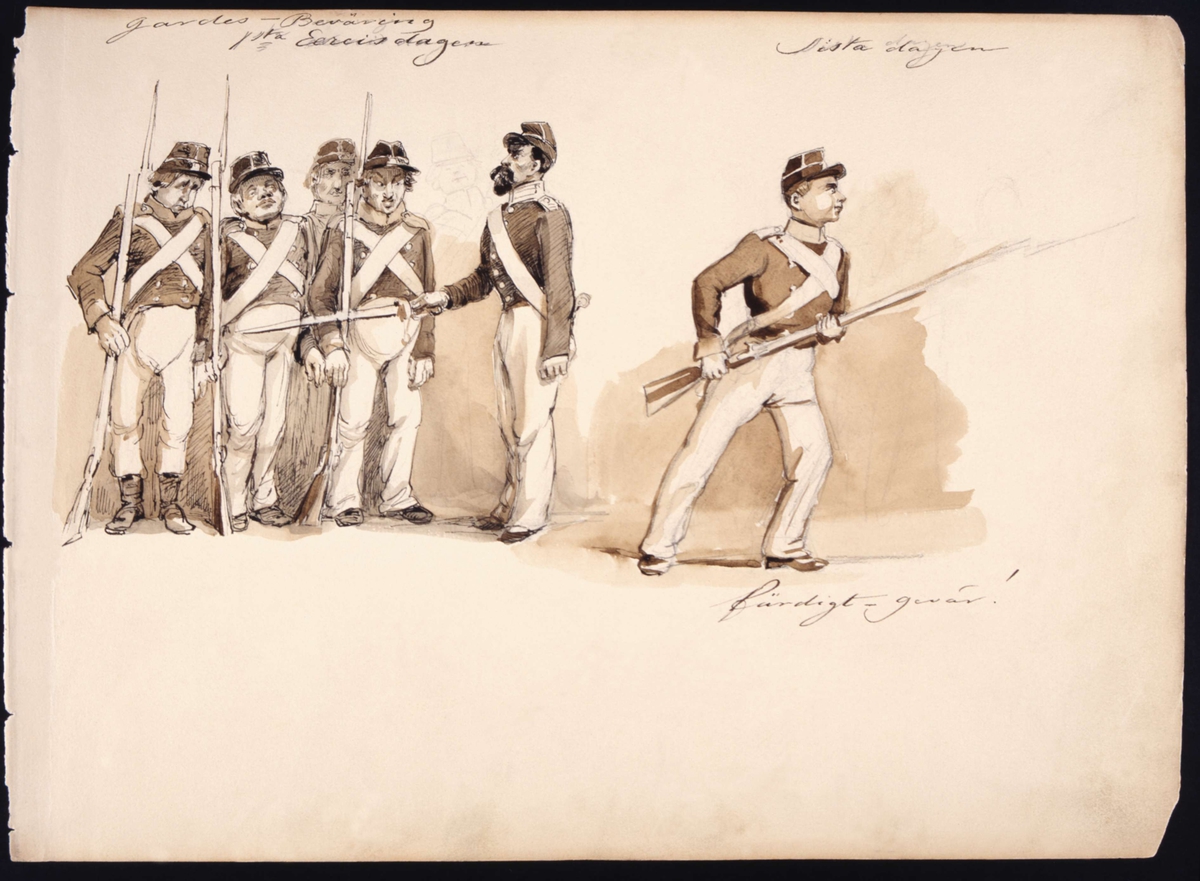 Gardes-Beväring
1sta Exercisdagen
Sista dagen
färdigt-gevär!